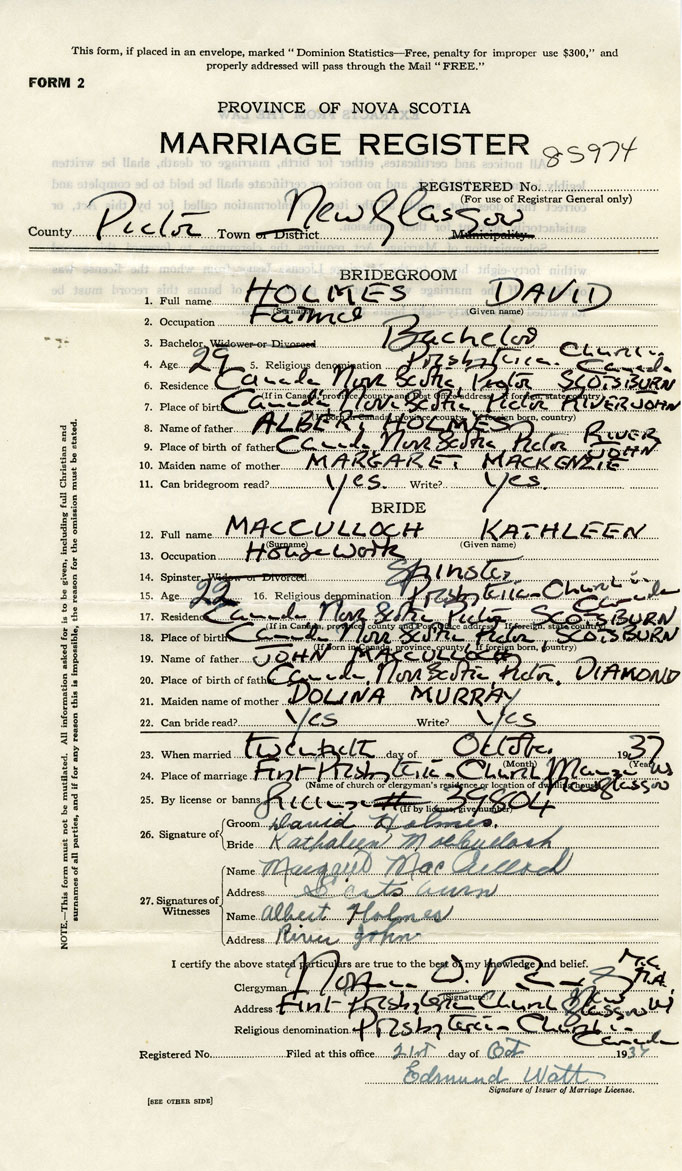 This form, if placed in an envelope, marked "Dominion Statistics—Free, penalty for improper use $300," and
properly addressed will pass through the Mail "FREE."
FORM 2
PROVINCE OF NOVA SCOTIA
MARRIAGE REGISTER 85974
REGISTERED No.
(For use of Registrar General only)
County Pictou Town or District New Glasgow Municipality
BRIDEGROOM
1. Full name HOLMES DAVID
(Surname) (Given name)
2. Occupation Farmer
3. Bachelor, Widower or Divorced Bachelor
4. Age 29 5. Religious denomination Presbyterian Church in Canada
6. Residence Canada Nova Scotia Pictou SCOTSBURN
(If in Canada, province, county and Post Office address. If foreign, state country)
7. Place of birth Canada Nova Scotia Pictou RIVER JOHN
(If born in Canada, province, county. If foreign born, country)
8. Name of father ALBERT HOLMES
9. Place of birth of father Canada Nova Scotia Pictou RIVER JOHN
10. Maiden name of mother MARGARET MACKENZIE
11. Can bridegroom read? Yes. Write? Yes.
BRIDE
12. Full name MACCULLOCH KATHLEEN
(Surname) (Given name)
13. Occupation Housework
14. Spinster, Widow or Divorced Spinster
15. Age 22 16. Religious denomination Presbyterian Church in Canada
17. Residence Canada Nova Scotia Pictou SCOTSBURN
(If in Canada, province, county and Post Office address. If foreign, state country)
18. Place of birth Canada Nova Scotia Pictou SCOTSBURN
(If born in Canada, province, county. If foreign born, country)
19. Name of father JOHN MACCULLOCH
20. Place of birth of father Canada, Nova Scotia, Pictou, DIAMOND
21. Maiden name of mother DOLINA MURRAY
22. Can bride read? Yes Write? Yes
23. When married twentieth day of October 1937
(Month) (Year)
24. Place of marriage First Presbyterian Church Manse New Glasgow
(Name of church or clergyman's residence or location of dwelling house)
25. By license or banns License # 39804
(If by license, give number)
26. Signature of
Groom David Holmes.
Bride Kathaleen MacCulloch
27. Signatures of Witnesses
Name Margaret MacLeod
Address Scotsburn
Name Albert Holmes
Address River John
I certify the above stated particulars are true to the best of my knowledge and belief.
Clergyman Norman D.
(Signature)
Address First Presbyterian Church New Glasgow NS
Religious denomination Presbyterian Church in Canada
Registered No. Filed at this office 21st day of Oct 1937
Edmund Watt
Signature of Issuer of Marriage License.
[SEE OTHER SIDE]
NOTE.—This form must not be mutilated. All information asked for is to be given, including full Christian and
surnames of all parties, and if for any reason this is impossible, the reason for the omission must be stated.